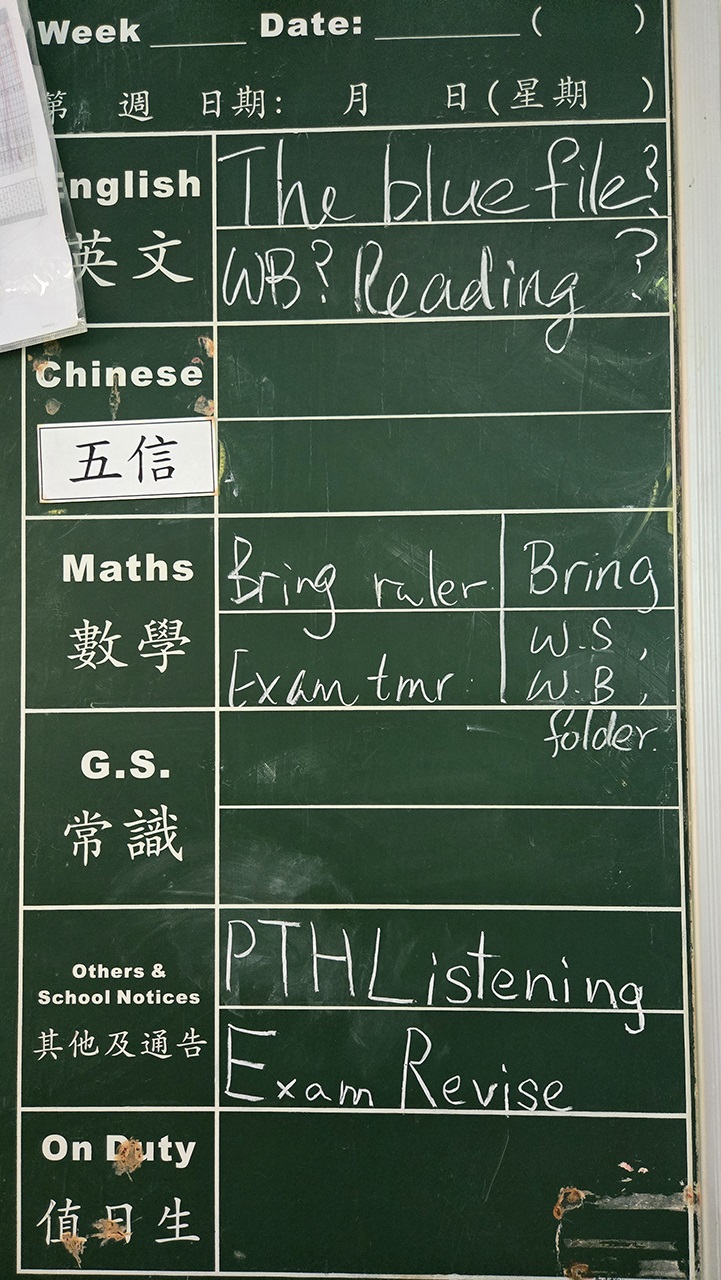 Week _____ Date: _________ ( )
第 週 日期: 月 日(星期 )
English
英文
The blue file?
WB? Reading ?
Chinese
五信
Maths
數學
Bring ruler
Exam tmr.
Bring
W.S,
W.B,
folder.
G.S.
常識
Others &
School Notices
其他及通告
PTH Listening
Exam Revise
On Duty
值日生